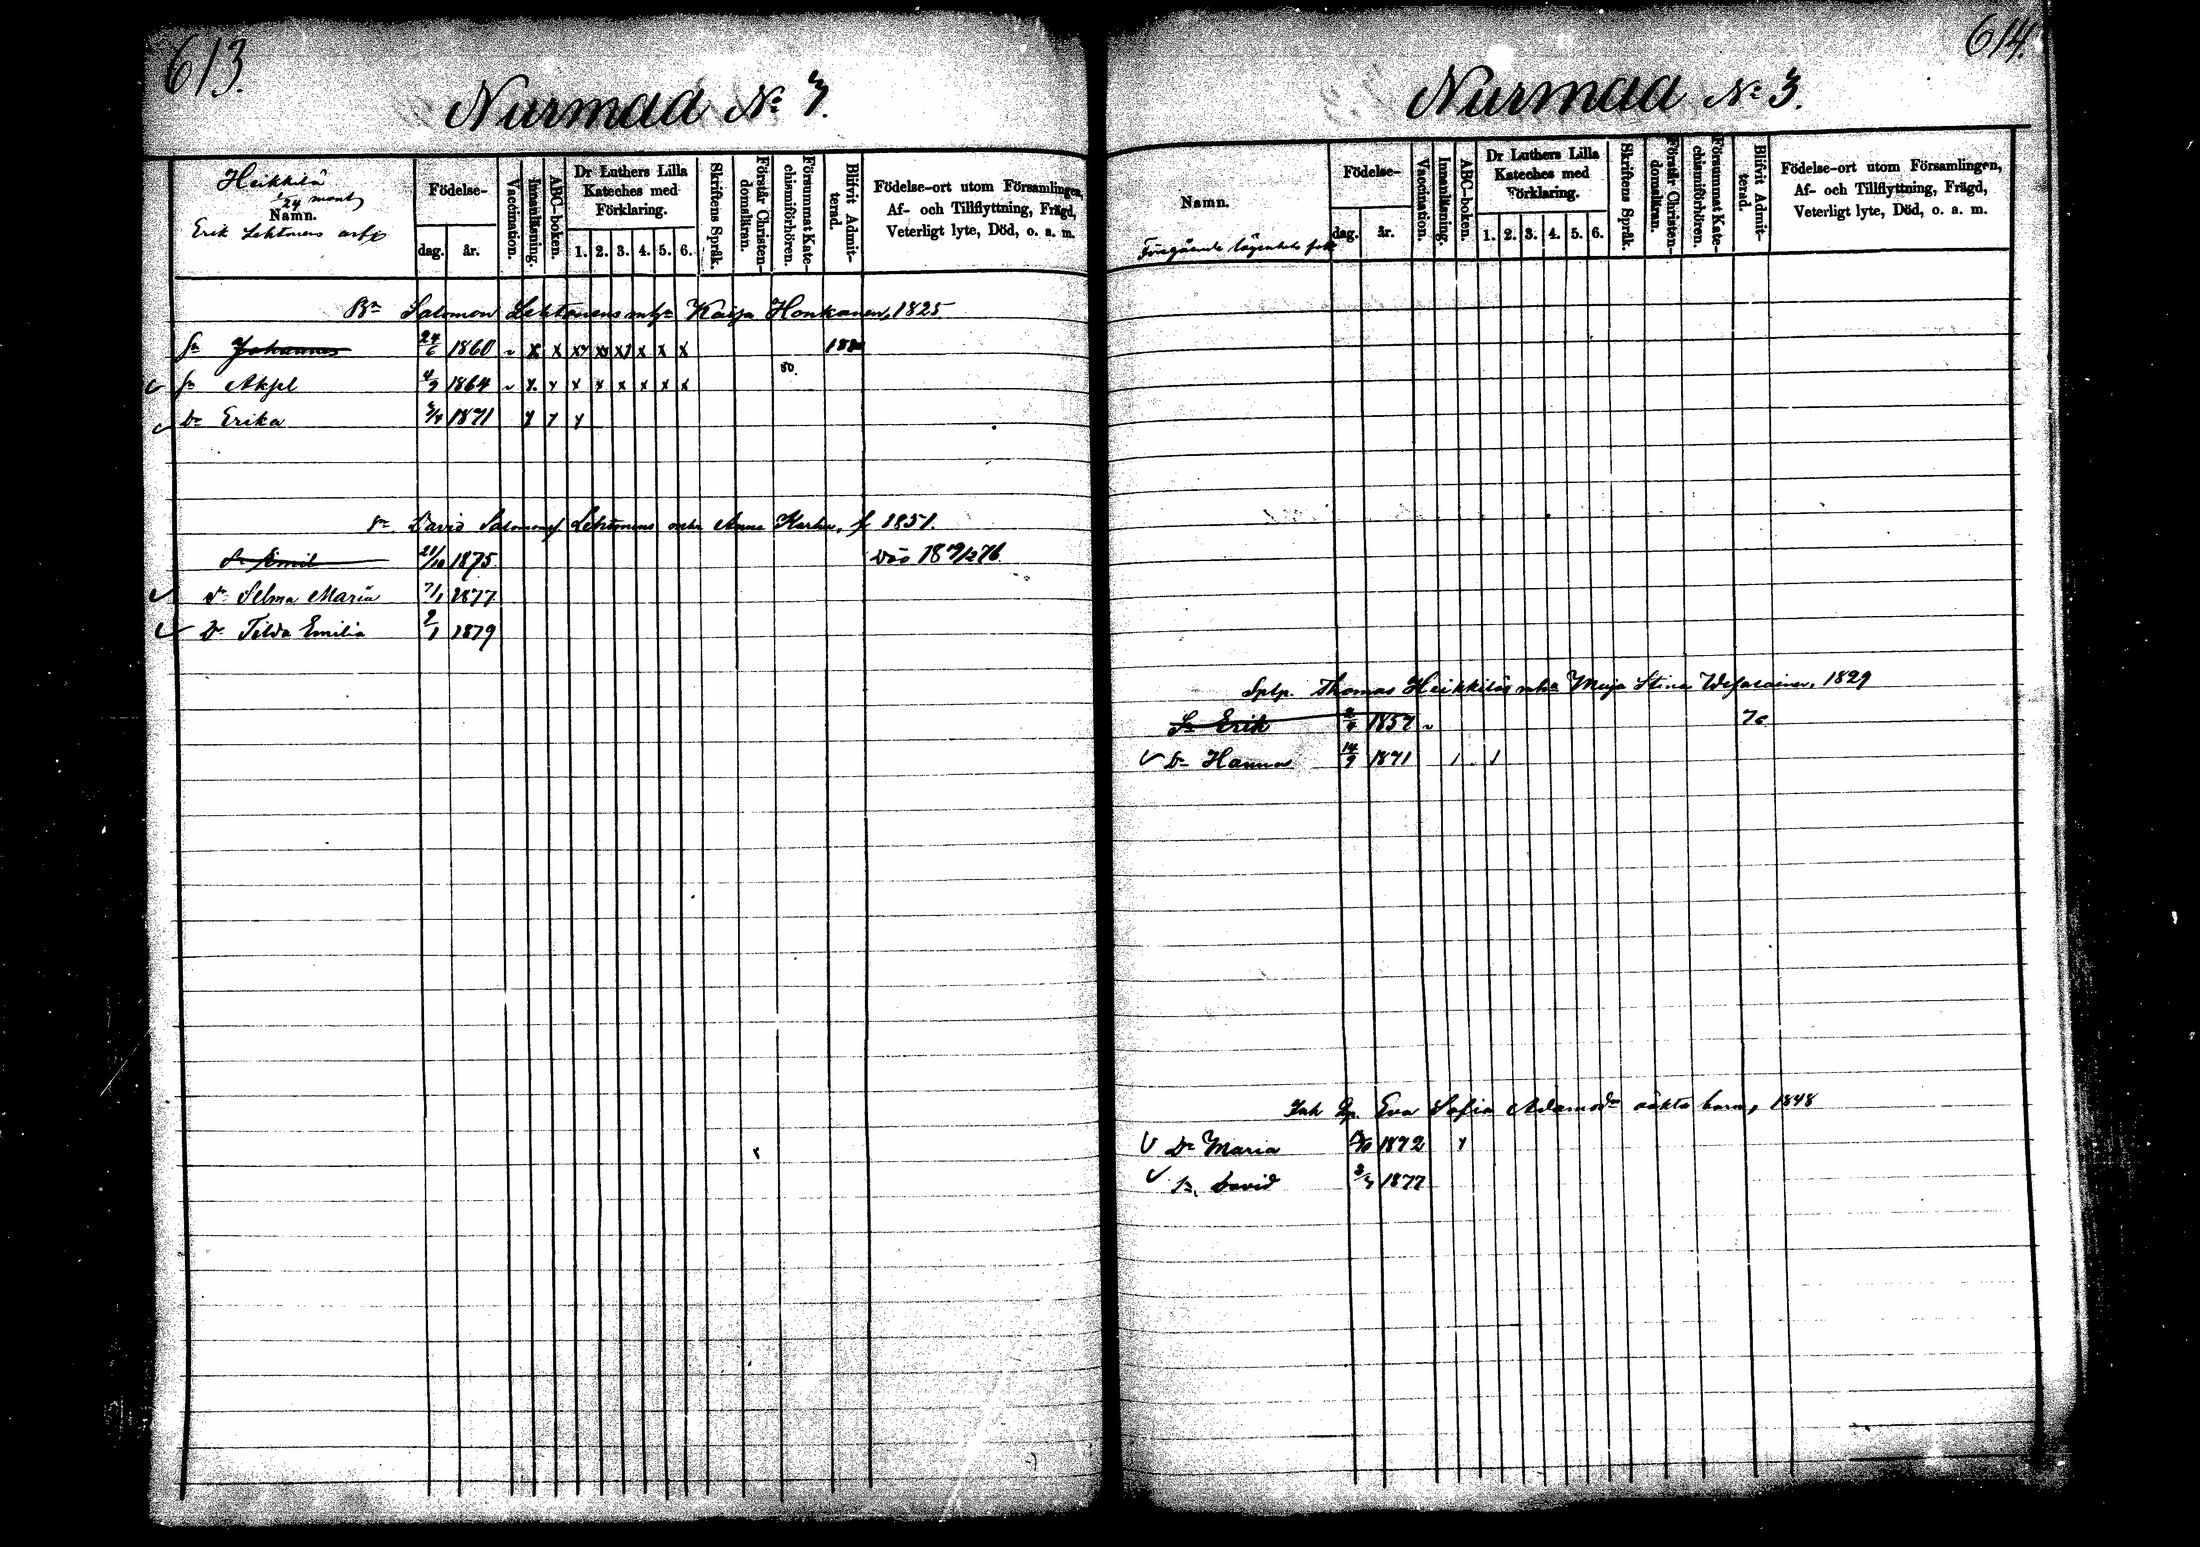 613.
Nurmaa No 3.
Heikkilä
1/24 mant
Namn.
Erik Lehtonens
Födelse-
dag. år.
Vaccination.
Innanläsning.
ABC-boken.
Dr Luthers Lilla
Kateches med
Förklaring.
1. 2. 3. 4. 5. 6.
Skriftens Språk.
Förstår Christen-
domsläran.
Försummat Kate-
chismiförhören.
Blifvit Admit-
terad.
Födelse-ort utom Församlingen,
Af- och Tillflyttning, Frägd,
Veterligt lyte, Död, o. a. m.
Bn Salomon Lehtonens Kaisa Honkanen, 1825
Sn Johannes 24/6 1860 x x x x x x x x
80.
Sn Axel 4/9 1864 x x x x x x x x
Dr Erika 1871 x x x
David Salomons Lehtonens Anna f. 1851.
Sn Emil 21/10 1875 Död 18 76.
Dr Selma Maria 7/1 1877
Dr Tilda Emilia 2/1 1879
614.
Nurmaa No 3.
Namn.
Föregående lägenhets folk
Födelse-
dag. år.
Vaccination.
Innanläsning.
ABC-boken.
Dr Luthers Lilla
Kateches med
Förklaring.
1. 2. 3. 4. 5. 6.
Skriftens Språk.
Förstår Christen-
domsläran.
Försummat Kate-
chismiförhören.
Blifvit Admit-
terad.
Födelse-ort utom Församlingen,
Af- och Tillflyttning, Frägd,
Veterligt lyte, Död, o. a. m.
Thomas Heikkiläs Maja Stina 1829
Sn Erik 1857 76
Dr Hanna 14/9 1871 1 1
Inh Eva Sofia Adamsdr oäkta barn, 1848
Dr Maria 1872
Sn David 1877